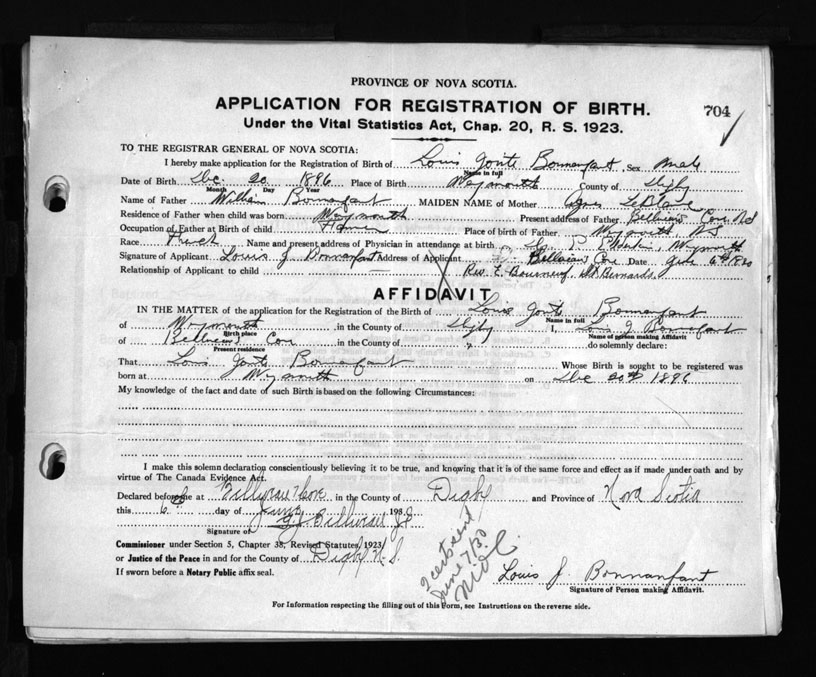 PROVINCE OF NOVA SCOTIA.
APPLICATION FOR REGISTRATION OF BIRTH. 704
Under the Vital Statistics Act, Chap. 20, R. S. 1923.
TO THE REGISTRAR GENERAL OF NOVA SCOTIA:
I hereby make application for the Registration of Birth of Louis Bonnanfant Sex Male
Name in full
Date of Birth Dec. 20 1896 Place of Birth Weymouth County of Digby
Month Day Year
Name of Father William Bonnanfant MAIDEN NAME of Mother LeBlanc
Residence of Father when child was born Weymouth Present address of Father Belliveau Cove NS
Occupation of Father at Birth of child Farmer Place of birth of Father Weymouth NS
Race French Name and present address of Physician in attendance at birth Dr Weymouth
Signature of Applicant Louis J. Bonnanfant Address of Applicant Belliveau Cove Date June 6th
Relationship of Applicant to child Rev. E. St Bernards
AFFIDAVIT
IN THE MATTER of the application for the Registration of the Birth of Louis Bonnanfant
Name in full
of Weymouth in the County of Digby I, Louis J. Bonnanfant
Birth place Name of person making Affidavit
of Belliveau Cove in the County of " do solemnly declare:
Present residence
That Louis Bonnanfant Whose Birth is sought to be registered was
born at Weymouth on Dec 20th 1896
My knowledge of the fact and date of such Birth is based on the following Circumstances:
I make this solemn declaration conscientiously believing it to be true, and knowing that it is of the same force and effect as if made under oath and by
virtue of The Canada Evidence Act.
Declared before me at Belliveau Cove in the County of Digby and Province of Nova Scotia
this 6th day of June 193
Signature of
Commissioner under Section 5, Chapter 38, Revised Statutes, 1923
or Justice of the Peace in and for the County of Digby N.S.
If sworn before a Notary Public affix seal.
2 certs sent
June 7/30
Louis J. Bonnanfant
Signature of Person making Affidavit.
For Information respecting the filling out of this Form, see Instructions on the reverse side.